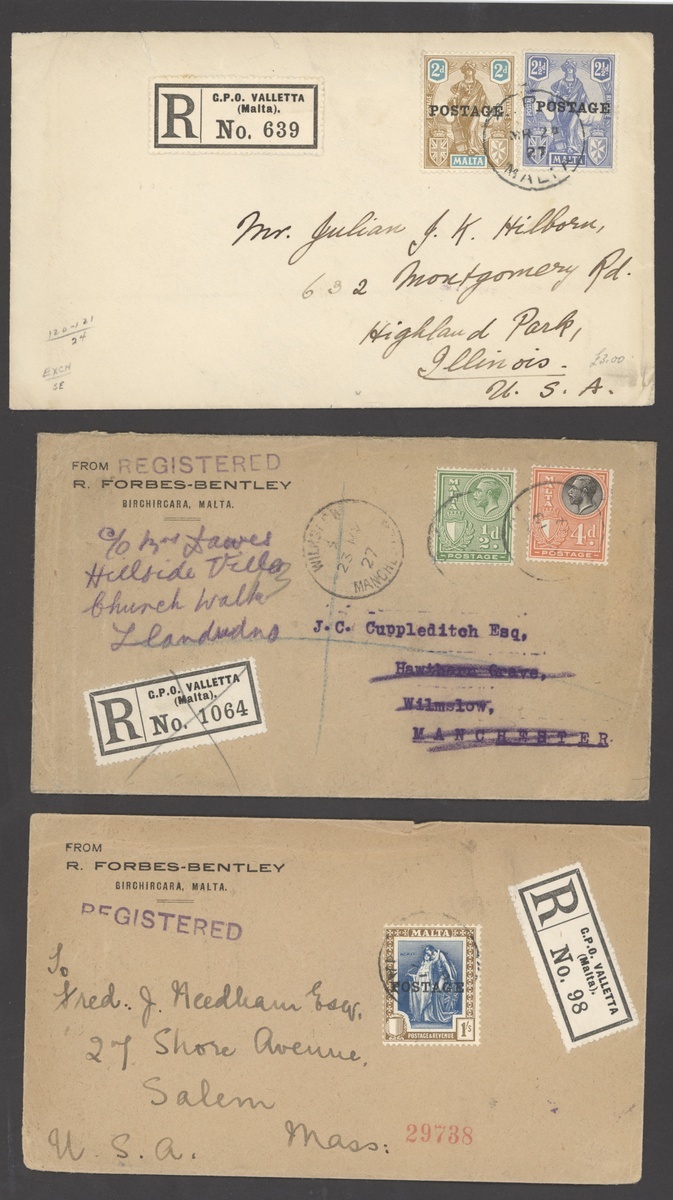 R
G.P.O. VALLETTA
(Malta).
No. 639
2d 2d
POSTAGE
MALTA
2½d 2½d
POSTAGE
MALTA
27
MALTA
Mr. Julian J. K. Hilborn,
632 Montgomery Rd.
Highland Park,
Illinois.
U. S. A.
120-121
24
EXCH
SE
£3.00
FROM REGISTERED
R. FORBES-BENTLEY
BIRCHIRCARA, MALTA.
c/o Mrs Dawes
Hillside Villa
Church Walk
Llandudno
23 MY
27
MALTA
½d.
POSTAGE
MALTA
4d.
POSTAGE
J.C. Cuppleditch Esq,
Hawthorn Grave,
Wilmslow,
MANCHESTER.
R
G.P.O. VALLETTA
(Malta).
No. 1064
FROM
R. FORBES-BENTLEY
BIRCHIRCARA, MALTA.
REGISTERED
MALTA
POSTAGE
POSTAGE & REVENUE
1/s
R
G.P.O. VALLETTA
(Malta).
No. 98
To
Fred. J. Needham Esq.
27 Shore Avenue.
Salem
Mass:
U. S. A.
29738